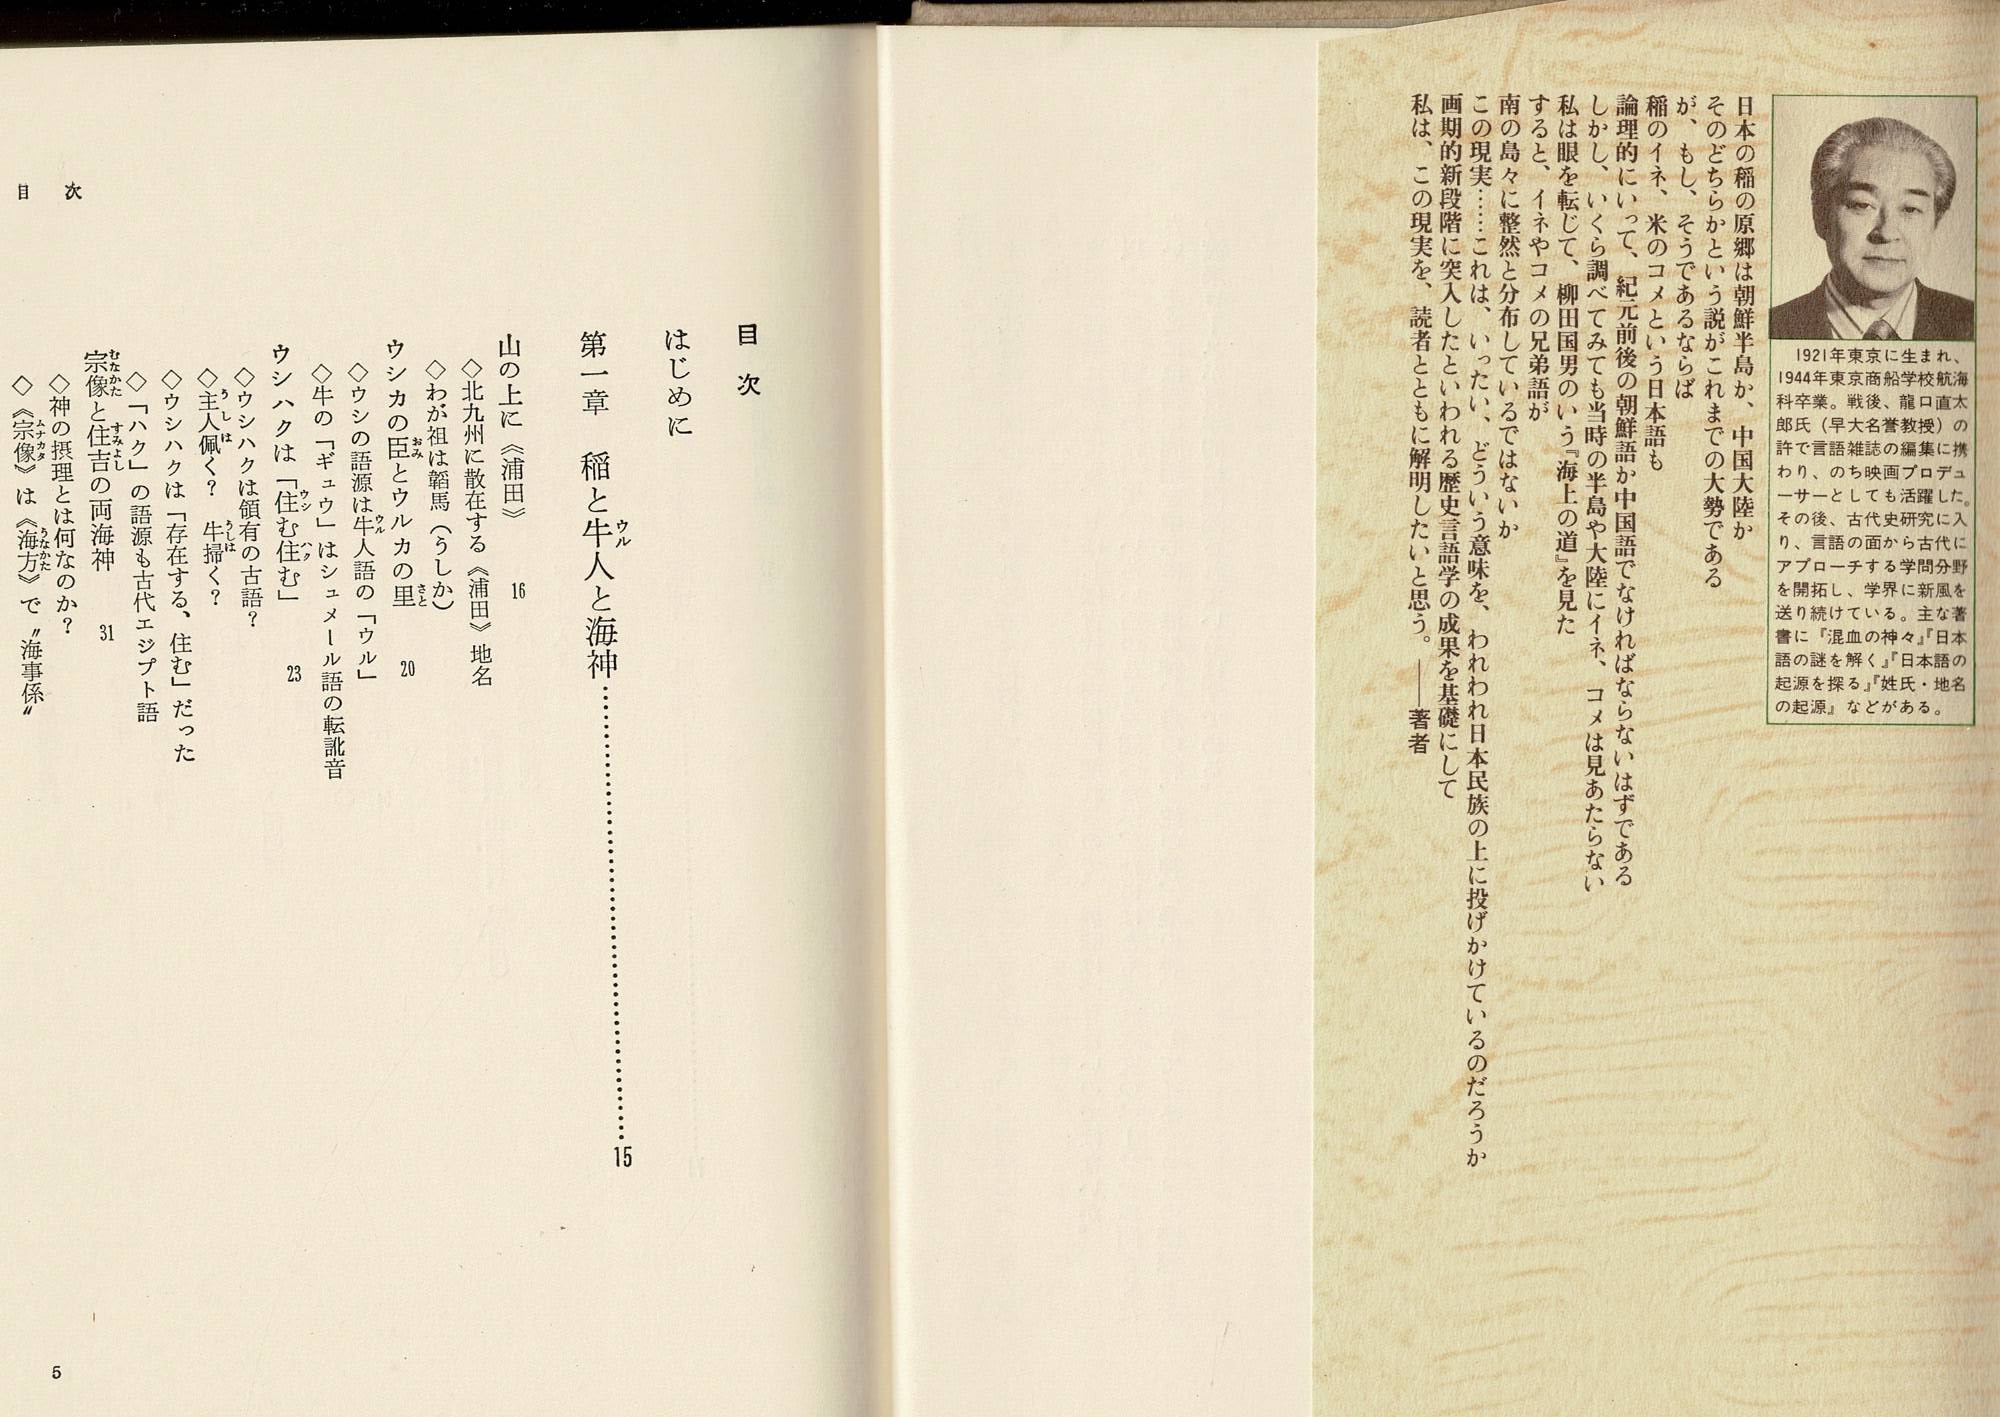 1921年東京に生まれ、
1944年東京商船学校航海
科卒業。戦後、龍口直太
郎氏（早大名誉教授）の
許で言語雑誌の編集に携
わり、のち映画プロデュ
ーサーとしても活躍した。
その後、古代史研究に入
り、言語の面から古代に
アプローチする学問分野
を開拓し、学界に新風を
送り続けている。主な著
書に『混血の神々』『日本
語の謎を解く』『日本語の
起源を探る』『姓氏・地名
の起源』などがある。
日本の稲の原郷は朝鮮半島か、中国大陸か
そのどちらかという説がこれまでの大勢である
が、もし、そうであるならば
稲のイネ、米のコメという日本語も
論理的にいって、紀元前後の朝鮮語か中国語でなければならないはずである
しかし、いくら調べてみても当時の半島や大陸にイネ、コメは見あたらない
私は眼を転じて、柳田国男のいう『海上の道』を見た
すると、イネやコメの兄弟語が
南の島々に整然と分布しているではないか
この現実……これは、いったい、どういう意味を、われわれ日本民族の上に投げかけているのだろうか
画期的新段階に突入したといわれる歴史言語学の成果を基礎にして
私は、この現実を、読者とともに解明したいと思う。——著者
目次
はじめに
第一章　稲と牛人と海神……………………15
ウル
山の上に《浦田》　16
◇北九州に散在する《浦田》地名
◇わが祖は韜馬（うしか）
ウシカの臣とウルカの里　20
おみ　さと
◇ウシの語源は牛人語の「ウル」
ウル
◇牛の「ギュウ」はシュメール語の転訛音
ウシハクは「住む住む」　23
ウシ　ハク
◇ウシハクは領有の古語？
◇主人佩く？　牛掃く？
うしは　うしは
◇ウシハクは「存在する、住む」だった
◇「ハク」の語源も古代エジプト語
宗像と住吉の両海神　31
むなかた　すみよし
◇神の摂理とは何なのか？
◇《宗像》は《海方》で〝海事係〟
ムナカタ　うなかた
目次
5